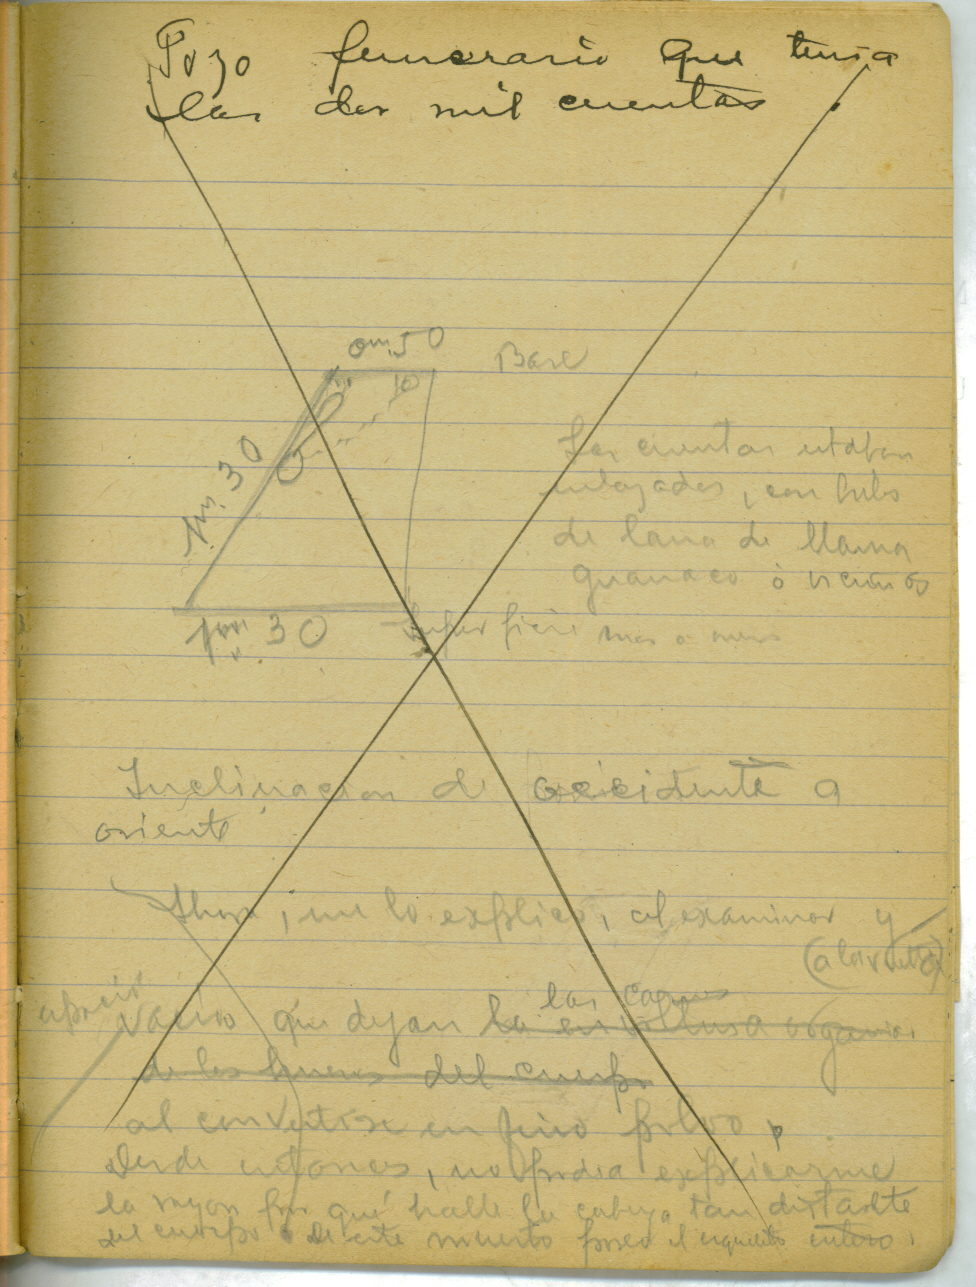 Pozo funerario que tenia
las dos mil cuentas
0m.50
Base
10
1m.30
Las cuentas estaban
enlazadas, con hilo
de lana de llama
guanaco ò vicuña
1m.30
Superficie mas o menos
Inclinacion de occidente a
oriente
Ahora, me lo explico, al examinar y
(a la vuelta)
las carnes
vacios que dejan la envoltura organica
de los huesos del cuerpo
al convertirse en fino polvo,
Desde entonces, no podia explicarme
la razon por qué hallé la cabeza tan distante
del cuerpo de este muerto poseo el esqueleto entero